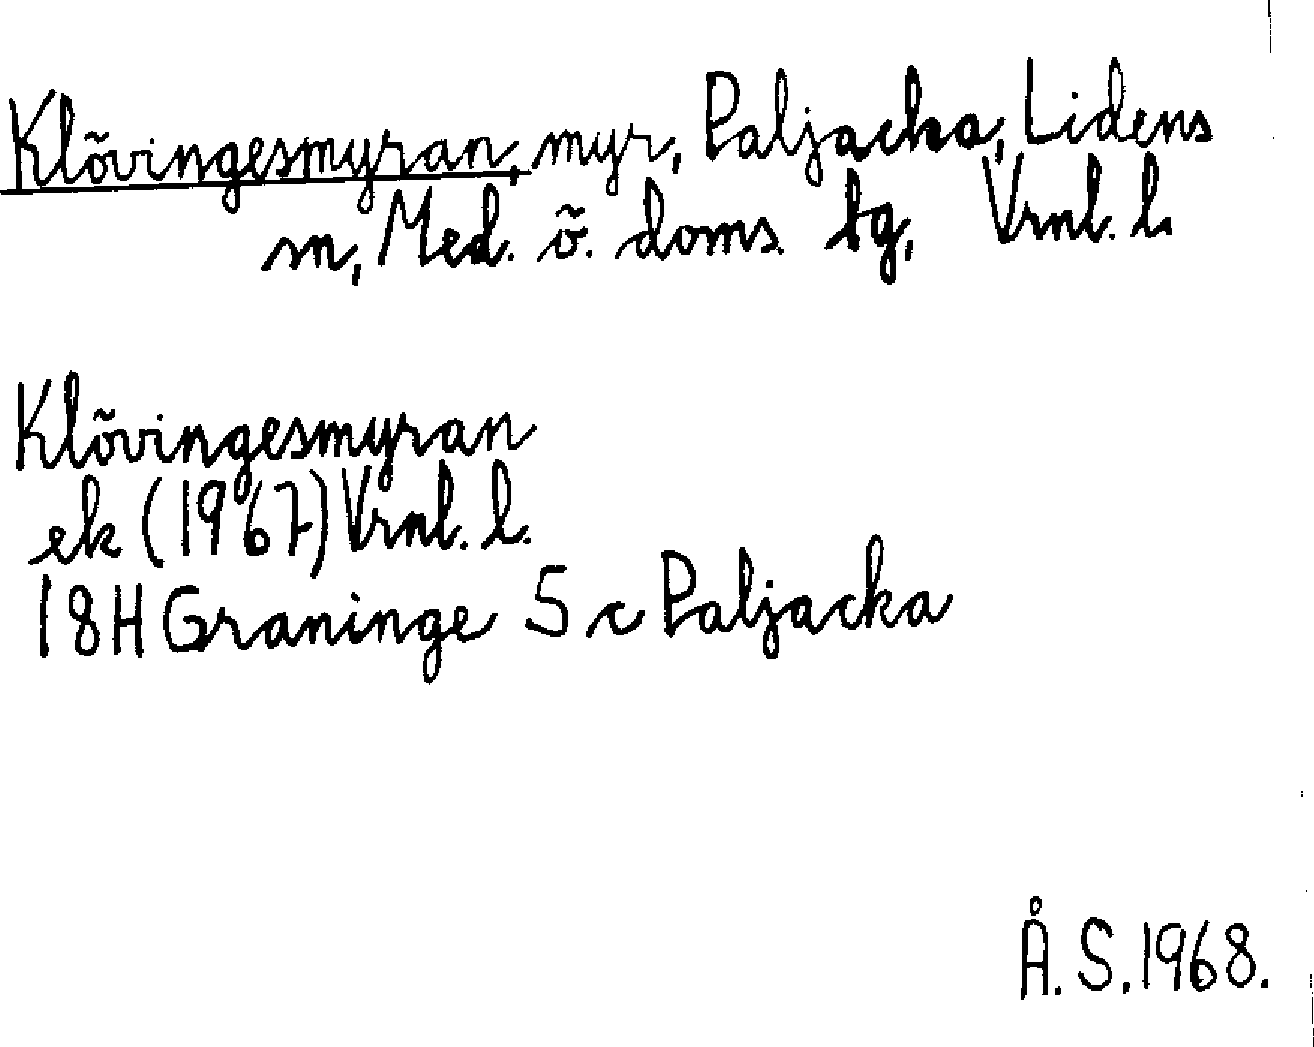 Klövingesmyran, myr, Paljacka, Lidens
sn, Med. ö. doms. tg, Vrnl. l.
Klövingesmyran
ek (1967) Vrnl. l.
18H Graninge 5 c Paljacka
Å. S. 1968.